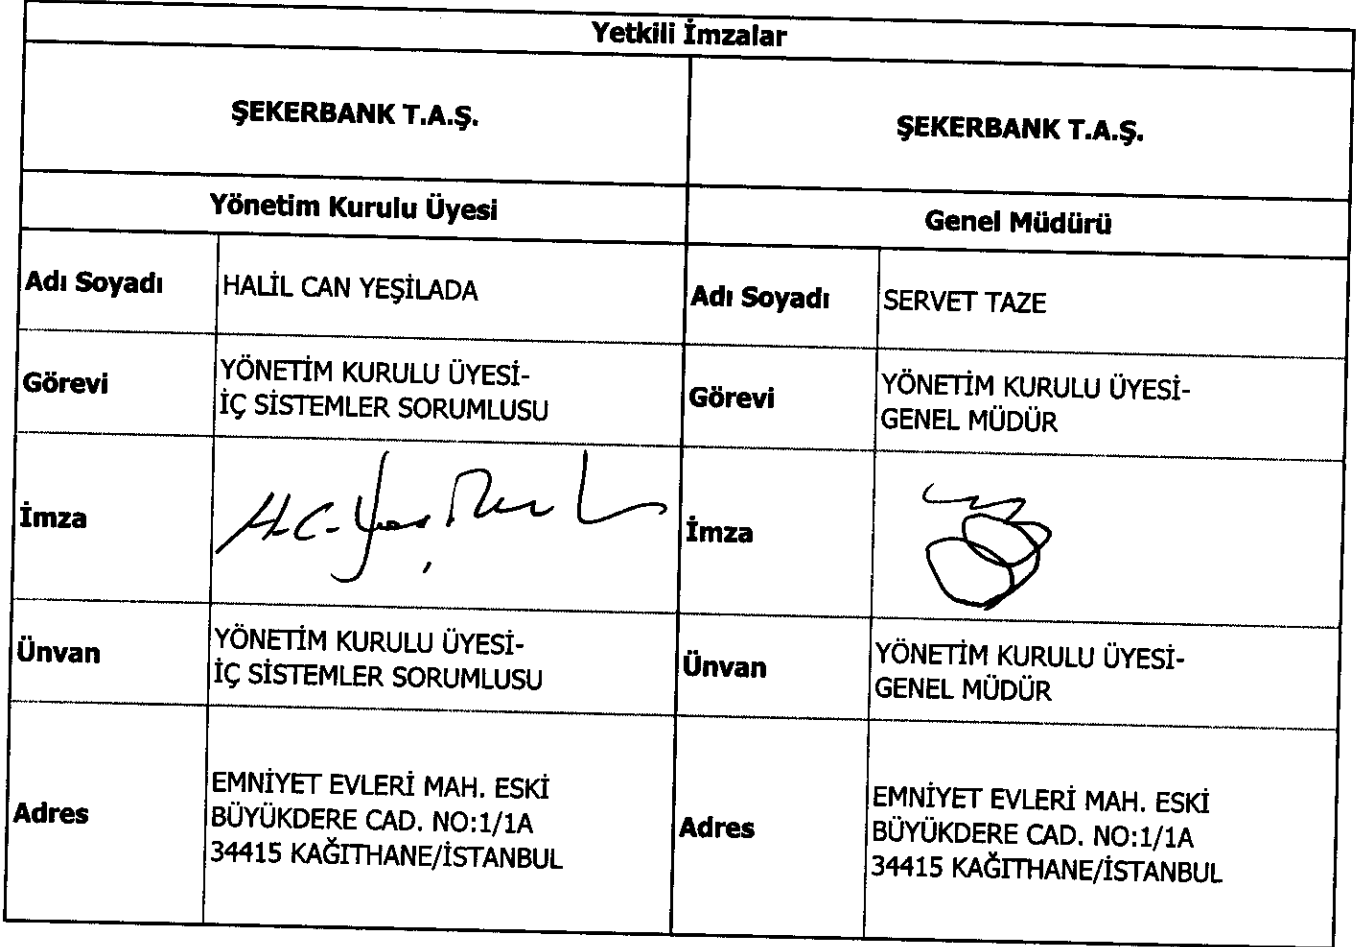 Yetkili İmzalar
ŞEKERBANK T.A.Ş.
ŞEKERBANK T.A.Ş.
Yönetim Kurulu Üyesi
Genel Müdürü
Adı Soyadı
HALİL CAN YEŞİLADA
Adı Soyadı
SERVET TAZE
Görevi
YÖNETİM KURULU ÜYESİ-
İÇ SİSTEMLER SORUMLUSU
Görevi
YÖNETİM KURULU ÜYESİ-
GENEL MÜDÜR
İmza
İmza
Ünvan
YÖNETİM KURULU ÜYESİ-
İÇ SİSTEMLER SORUMLUSU
Ünvan
YÖNETİM KURULU ÜYESİ-
GENEL MÜDÜR
Adres
EMNİYET EVLERİ MAH. ESKİ
BÜYÜKDERE CAD. NO:1/1A
34415 KAĞITHANE/İSTANBUL
Adres
EMNİYET EVLERİ MAH. ESKİ
BÜYÜKDERE CAD. NO:1/1A
34415 KAĞITHANE/İSTANBUL